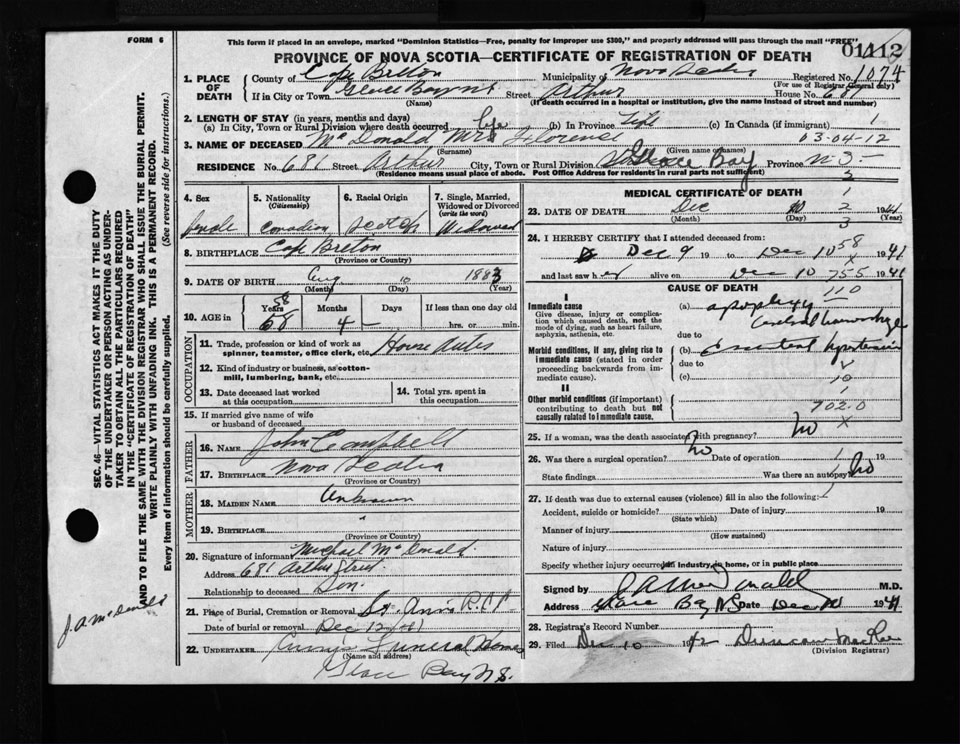 FORM 6
This form if placed in an envelope, marked "Dominion Statistics—Free, penalty for improper use $300," and properly addressed will pass through the mail "FREE"
01112
PROVINCE OF NOVA SCOTIA—CERTIFICATE OF REGISTRATION OF DEATH
1. PLACE OF DEATH County of Cape Breton Municipality of Nova Scotia Registered No. 1074
(For use of Registrar General only)
If in City or Town Glace Bay NS Street Arthur House No. 681
(Name) (If death occurred in a hospital or institution, give the name instead of street and number)
2. LENGTH OF STAY (in years, months and days)
(a) In City, Town or Rural Division where death occurred life (b) In Province Life (c) In Canada (if immigrant) 1
63-04-12
3. NAME OF DECEASED McDonald Mrs Florence
(Surname) (Given name or names)
RESIDENCE No. 681 Street Arthur City, Town or Rural Division Glace Bay Province N S —
(Residence means usual place of abode. Post Office Address for residents in rural parts not sufficient) 3
4. Sex 5. Nationality (Citizenship) 6. Racial Origin 7. Single, Married, Widowed or Divorced (write the word)
female Canadian Scotch Widowed
8. BIRTHPLACE Cape Breton
(Province or Country)
9. DATE OF BIRTH Aug 10 1883
(Month) (Day) (Year)
10. AGE in Years 58 Months 4 Days — If less than one day old
58
hrs. or min.
OCCUPATION
11. Trade, profession or kind of work as spinner, teamster, office clerk, etc. House duties
12. Kind of industry or business, as cotton-mill, lumbering, bank, etc.
13. Date deceased last worked at this occupation 14. Total yrs. spent in this occupation
15. If married give name of wife or husband of deceased
FATHER
16. NAME John Campbell
17. BIRTHPLACE Nova Scotia
(Province or Country)
MOTHER
18. MAIDEN NAME Unknown
19. BIRTHPLACE "
(Province or Country)
20. Signature of informant Michael McDonald
Address 681 Arthur Street
Relationship to deceased Son
21. Place of Burial, Cremation or Removal St. Anns R.C.
Date of burial or removal Dec 12/41
22. UNDERTAKER Funeral Home
(Name and address)
Glace Bay N S.
MEDICAL CERTIFICATE OF DEATH 1
23. DATE OF DEATH Dec 2 1941
(Month) (Day) (Year)
3
24. I HEREBY CERTIFY that I attended deceased from:
58
Dec 9 19 to Dec 10 1941
x
and last saw her alive on Dec 10 755 1941
CAUSE OF DEATH 110
I
Immediate cause (a) apoplexy
Give disease, injury or complication which caused death, not the mode of dying, such as heart failure, asphyxia, asthenia, etc.
Cerebral hemorrhage
due to
Morbid conditions, if any, giving rise to immediate cause (stated in order proceeding backwards from immediate cause). (b) Essential hypertension
due to
(c)
10
II
Other morbid conditions (if important) contributing to death but not causally related to immediate cause. 702.0
x
25. If a woman, was the death associated with pregnancy? No
26. Was there a surgical operation? No Date of operation 19
State findings Was there an autopsy? No
27. If death was due to external causes (violence) fill in also the following:
Accident, suicide or homicide? Date of injury 19
(State which)
Manner of injury
(How sustained)
Nature of injury
Specify whether injury occurred in industry, in home, or in public place
Signed by J A McDonald M.D.
Address Glace Bay NS Date Dec 1941
28. Registrar's Record Number
29. Filed Dec 10 1942 Duncan
(Division Registrar)
SEC. 46—VITAL STATISTICS ACT MAKES IT THE DUTY
OF THE UNDERTAKER OR PERSON ACTING AS UNDERTAKER TO OBTAIN ALL THE PARTICULARS REQUIRED
IN THE "CERTIFICATE OF REGISTRATION OF DEATH"
AND TO FILE THE SAME WITH THE DIVISION REGISTRAR WHO SHALL ISSUE THE BURIAL PERMIT.
WRITE PLAINLY WITH UNFADING INK. THIS IS A PERMANENT RECORD.
Every item of information should be carefully supplied. (See reverse side for instructions.)
J. A. McDonald